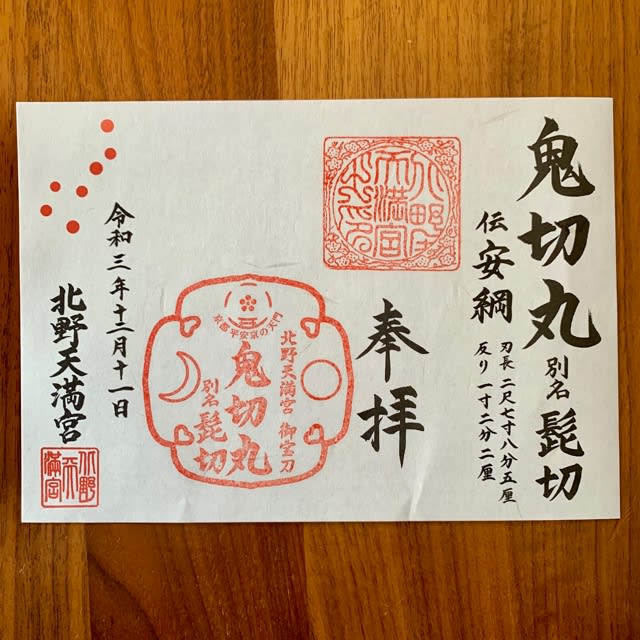 鬼切丸 別名 髭切
伝 安綱
刃長 二尺七寸八分五厘
反り 一寸二分二厘
奉拝
北野天満宮 御宝刀
鬼切丸
別名 髭切
京都平安京の天門
令和三年十二月十一日
北野天満宮
北野天満宮